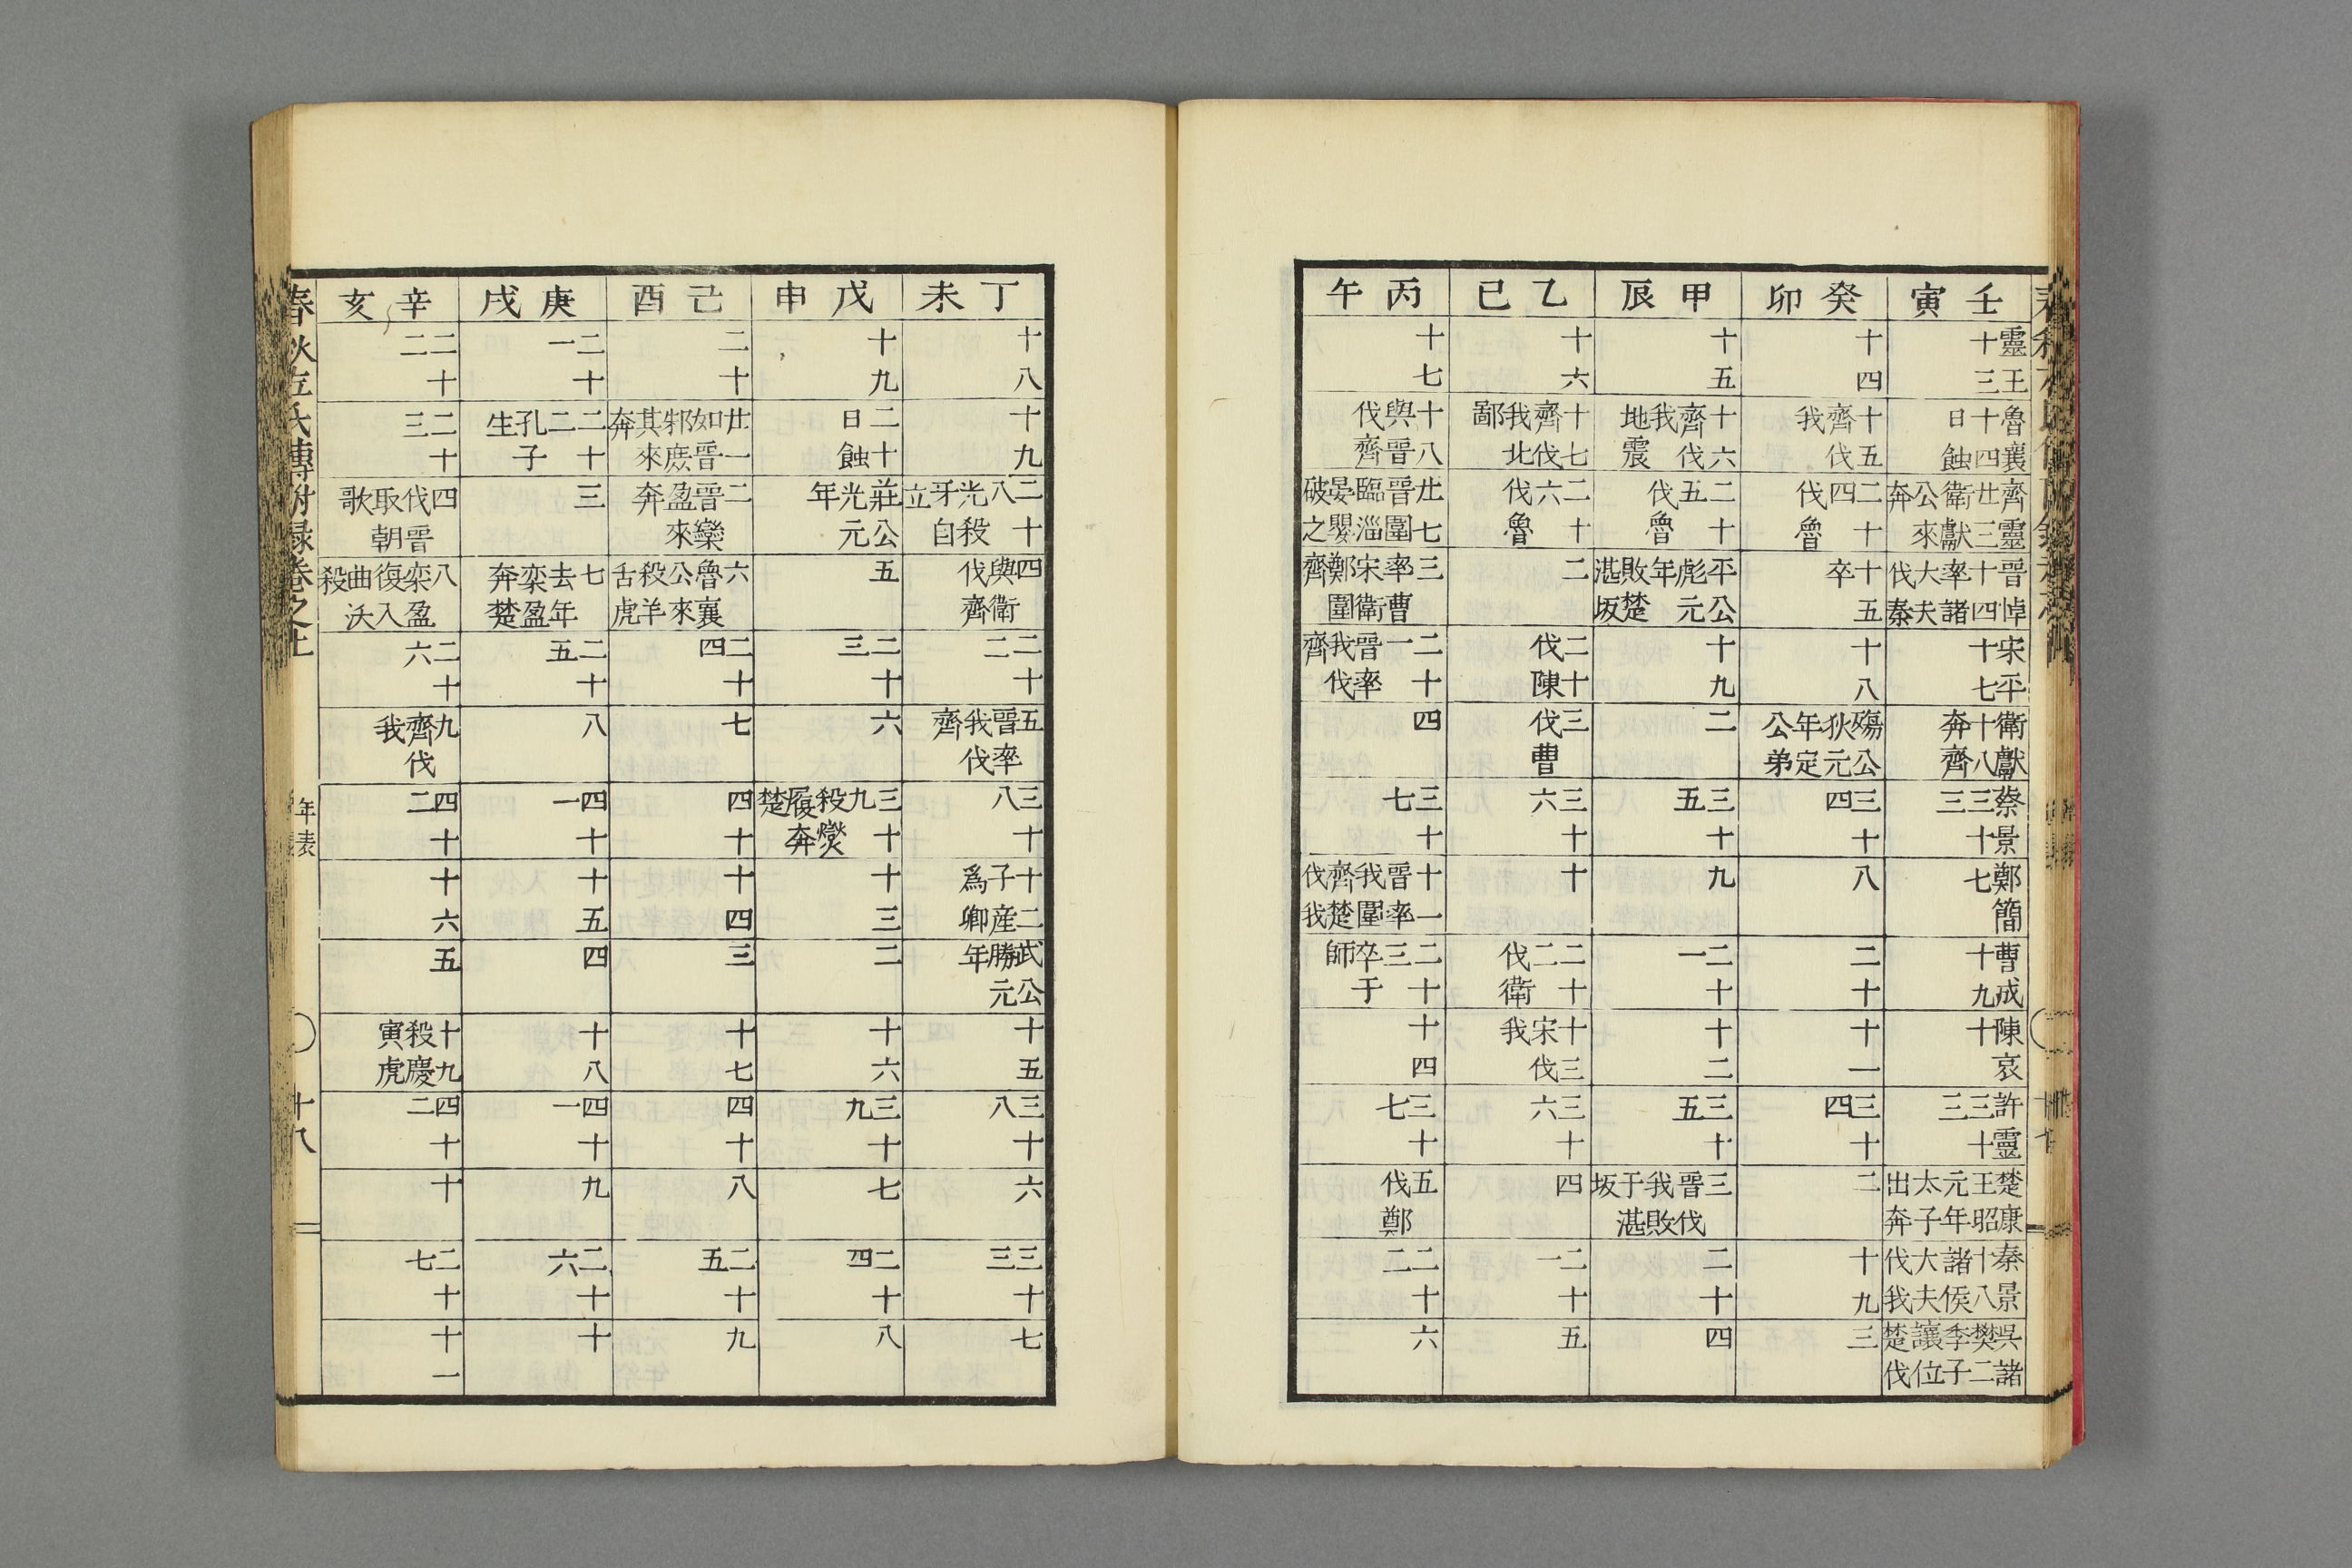 壬寅
靈王十三
魯襄十四日蝕
齊靈廿三衛獻公來奔
晉悼十四率諸大夫伐秦
宋平十七
衛獻十八奔齊
蔡景三十三
鄭簡七
曹成十九
陳哀十
許靈三十三
楚康王昭元年太子出奔
秦景十八諸侯大夫伐我
吳諸樊二季子讓位楚伐
癸卯
十四
十五齊伐我
二十四伐魯
十五卒
十八
殤公狄元年定公弟
三十四
八
二十
十一
三十四
二
十九
三
甲辰
十五
十六齊伐我地震
二十五伐魯
平公彪元年敗楚湛坂
十九
二
三十五
九
二十一
十二
三十五
三晉伐我敗于湛坂
二十
四
乙巳
十六
十七齊伐我北鄙
二十六伐魯
二
二十伐陳
三伐曹
三十六
十
二十二伐衛
十三宋伐我
三十六
四
二十一
五
丙午
十七
十八與晉伐齊
廿七晉圍臨淄晏嬰破之
三率曹宋衛鄭圍齊
二十一晉率我伐齊
四
三十七
十一晉率我圍齊楚伐我
二十三卒于師
十四
三十七
五伐鄭
二十二
六
丁未
十八
十九
二十八光殺牙自立
四與衛伐齊
二十二
五晉率我伐齊
三十八
十二子産爲卿
武公勝元年
十五
三十八
六
三十三
七
戊申
十九
二十日蝕
莊公光元年
五
二十三
六
三十九殺燮履奔楚
十三
二
十六
三十九
七
二十四
八
己酉
二十
廿一如晉邾庶其來奔
二晉欒盈來奔
六魯襄公來殺羊舌虎
二十四
七
四十
十四
三
十七
四十
八
二十五
九
庚戌
二十一
二十二孔子生
三
七去年栾盈奔楚
二十五
八
四十一
十五
四
十八
四十一
九
二十六
十
辛亥
二十二
二十三
四伐晉取朝歌
八栾盈復入曲沃殺
二十六
九齊伐我
四十二
十六
五
十九殺慶寅虎
四十二
十
二十七
十一
春秋左氏傳附録卷之上
年表
十八